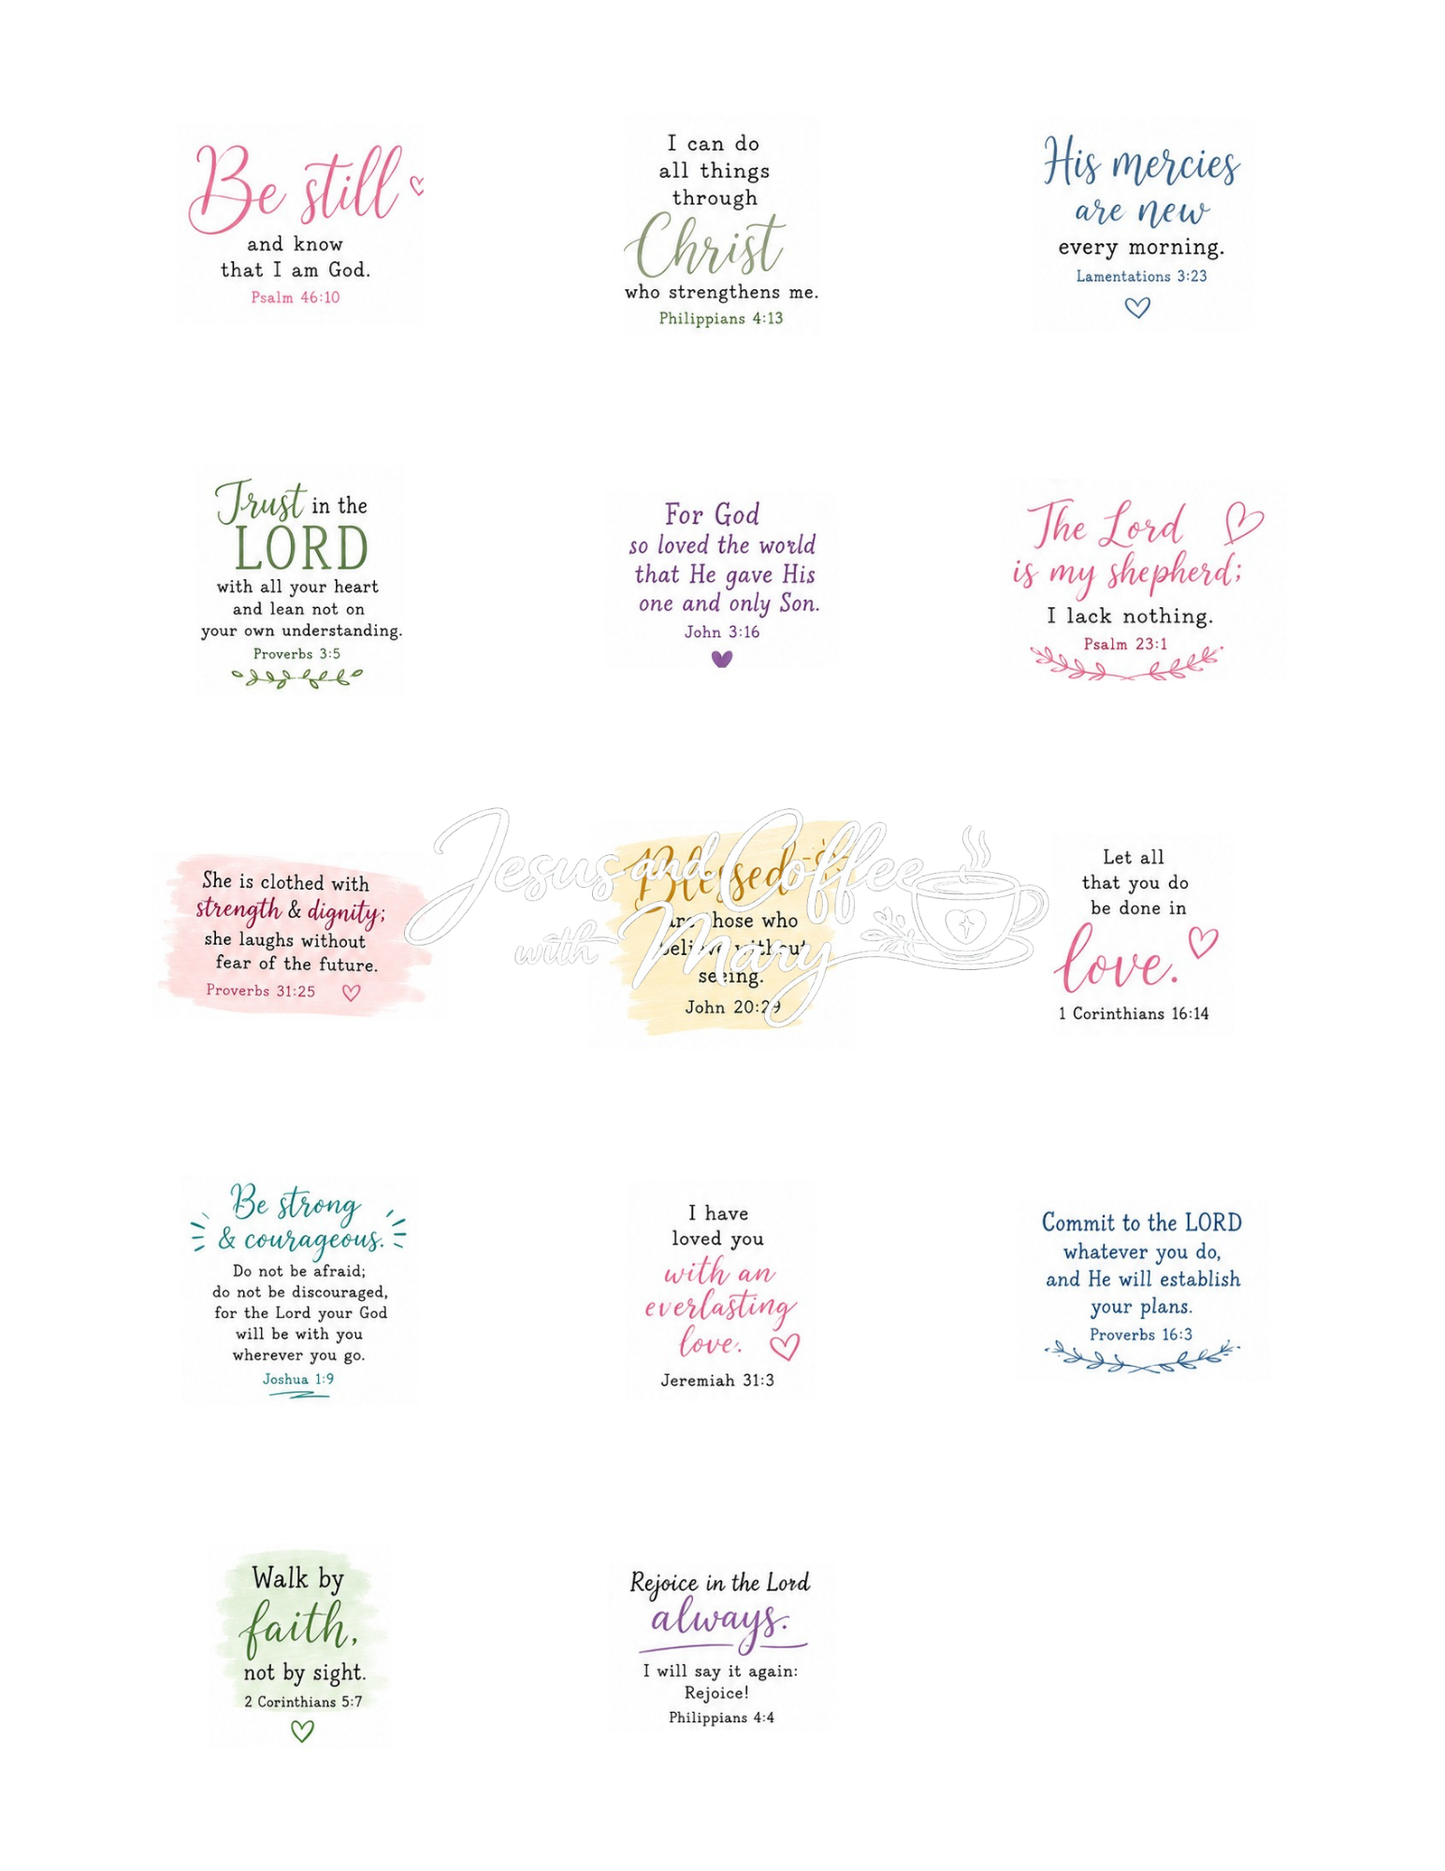 Be still
and know
that I am God.
Psalm 46:10
I can do
all things
through
Christ
who strengthens me.
Philippians 4:13
His mercies
are new
every morning.
Lamentations 3:23
Trust in the
LORD
with all your heart
and lean not on
your own understanding.
Proverbs 3:5
For God
so loved the world
that He gave His
one and only Son.
John 3:16
The Lord
is my shepherd;
I lack nothing.
Psalm 23:1
She is clothed with
strength & dignity;
she laughs without
fear of the future.
Proverbs 31:25
Blessed
are those who
believe without
seeing.
John 20:29
Jesus and Coffee
with Mary
Let all
that you do
be done in
love.
1 Corinthians 16:14
Be strong
& courageous.
Do not be afraid;
do not be discouraged,
for the Lord your God
will be with you
wherever you go.
Joshua 1:9
I have
loved you
with an
everlasting
love.
Jeremiah 31:3
Commit to the LORD
whatever you do,
and He will establish
your plans.
Proverbs 16:3
Walk by
faith,
not by sight.
2 Corinthians 5:7
Rejoice in the Lord
always.
I will say it again:
Rejoice!
Philippians 4:4